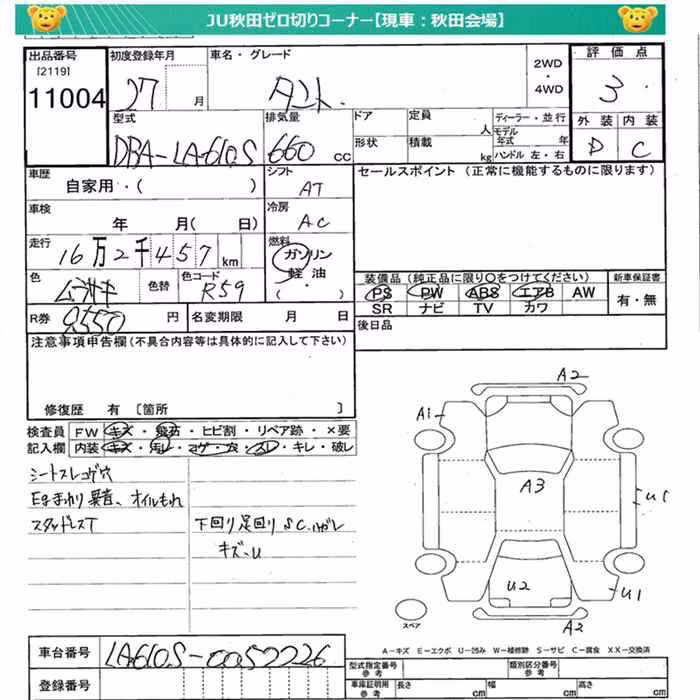 JU秋田ゼロ切りコーナー【現車：秋田会場】
出品番号 初度登録年月 車名・グレード 評価点
[2119]
11004 27 月 タント. 2WD ・ 4WD 3
型式 排気量 ドア 定員 人 ディーラー・並行 外装 内装
DBA-LA610S 660 CC 形状 積載 kg モデル年式 年 ハンドル 左・右 D C
車歴 自家用・( ) シフト AT セールスポイント (正常に機能するものに限ります)
車検 年 月( 日) 冷房 AC
走行 16万2千457 km 燃料 ガソリン
軽油
( )
色 色替 色コード R59
装備品 (純正品に限り○をつけてください) 新車保証書
PS PW ABS エアB AW 有・無
SR ナビ TV カワ
R券 9550 円 名変期限 月 日 後日品
注意事項申告欄(不具合内容等は具体的に記入して下さい)
修復歴 有 [箇所 ]
検査員 FW キズ・飛石・ヒビ割・リペア跡・×要
記入欄 内装・キズ・汚レ・コゲ・穴・スレ・キレ・破レ
シートスレコゲ穴
Egまわり異音、オイルもれ
スタッドレスT 下回り足回りSC.ハガレ
キズ・U
A2
A1
A3
U1
U2
U1
A2
スペア
A－キズ E－エクボ U－凹み W－補修跡 S－サビ C－腐食 XX－交換済
車台番号 LA610S-0052226 型式指定番号 参考 類別区分番号 参考
登録番号 車庫証明用 参考 長さ cm 幅 cm 高さ cm